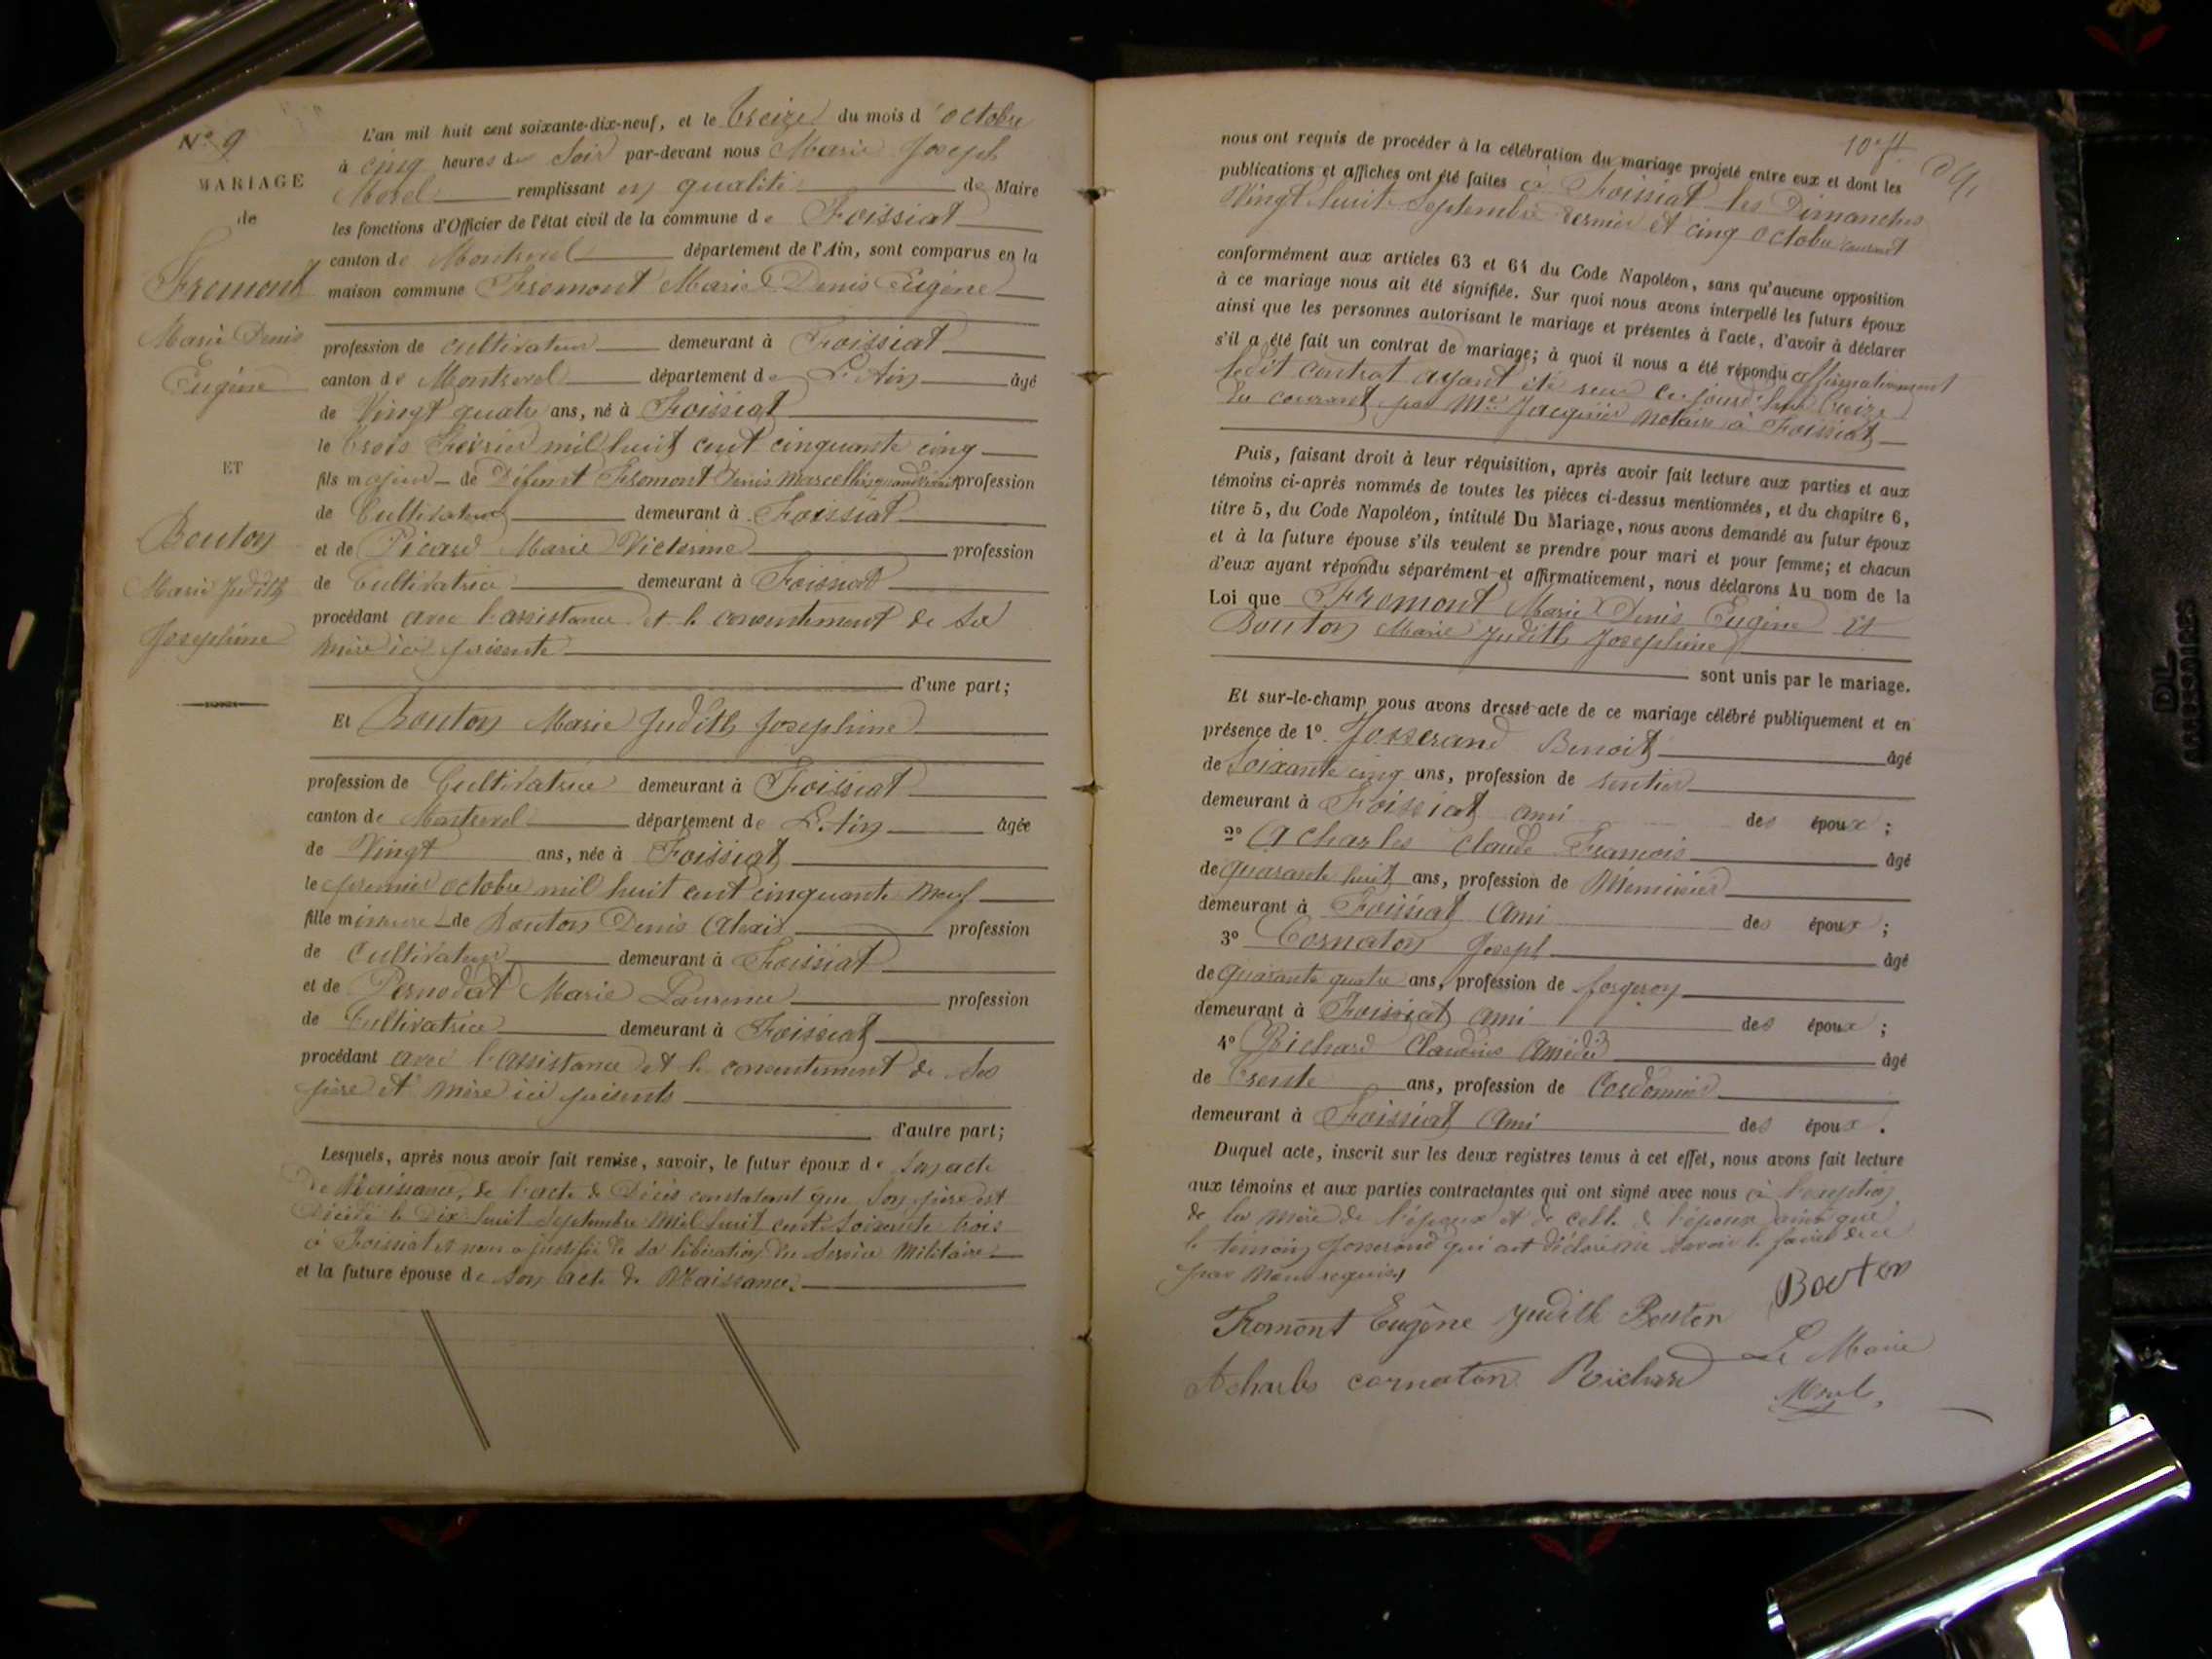 N° 9
MARIAGE
de
Fromont
Marie Denis
Eugène
ET
Bouton
Marie Judith
Josephine
L'an mil huit cent soixante-dix-neuf, et le treize du mois d'octobre
à cinq heures du soir par-devant nous Marie Joseph
Morel remplissant en qualité de Maire
les fonctions d'Officier de l'état civil de la commune de Foissiat
canton de Montrevel département de l'Ain, sont comparus en la
maison commune Fromont Marie Denis Eugène
profession de cultivateur demeurant à Foissiat
canton de Montrevel département de L'Ain âgé
de Vingt quatre ans, né à Foissiat
le trois Février mil huit cent cinquante cinq
fils majeur de Défunt Fromont Denis Marcellin quand vivait profession
de Cultivateur demeurant à Foissiat
et de Picard Marie Victorine profession
de Cultivatrice demeurant à Foissiat
procédant avec l'assistance et le consentement de sa
mère ici présente
d'une part;
Et Bouton Marie Judith Josephine
profession de Cultivatrice demeurant à Foissiat
canton de Montrevel département de L'Ain âgée
de Vingt ans, née à Foissiat
le premier octobre mil huit cent cinquante neuf
fille mineure de Bouton Denis Alexis profession
de Cultivateur demeurant à Foissiat
et de Pernodat Marie Laurence profession
de Cultivatrice demeurant à Foissiat
procédant avec l'assistance et le consentement de ses
père et mère ici présents
d'autre part;
Lesquels, après nous avoir fait remise, savoir, le futur époux de son acte
de Naissance, de l'acte de Décès constatant que son père est
Décédé le Dix huit Septembre Mil huit cent soixante trois
à Foissiat et nous a justifié de sa libération du Service Militaire
et la future épouse de son acte de Naissance.
10e f.
nous ont requis de procéder à la célébration du mariage projeté entre eux et dont les
publications et affiches ont été faites à Foissiat les Dimanches
Vingt huit Septembre dernier et cinq octobre courant
conformément aux articles 63 et 64 du Code Napoléon, sans qu'aucune opposition
à ce mariage nous ait été signifiée. Sur quoi nous avons interpellé les futurs époux
ainsi que les personnes autorisant le mariage et présentes à l'acte, d'avoir à déclarer
s'il a été fait un contrat de mariage; à quoi il nous a été répondu affirmativement
ledit contrat ayant été reçu ce jourd'hui treize
du courant par Me Jacquier notaire à Foissiat
Puis, faisant droit à leur réquisition, après avoir fait lecture aux parties et aux
témoins ci-après nommés de toutes les pièces ci-dessus mentionnées, et du chapitre 6,
titre 5, du Code Napoléon, intitulé Du Mariage, nous avons demandé au futur époux
et à la future épouse s'ils veulent se prendre pour mari et pour femme; et chacun
d'eux ayant répondu séparément et affirmativement, nous déclarons Au nom de la
Loi que Fromont Marie Denis Eugène et
Bouton Marie Judith Josephine
sont unis par le mariage.
Et sur-le-champ nous avons dressé acte de ce mariage célébré publiquement et en
présence de 1° Josserand Benoit âgé
de Soixante cinq ans, profession de rentier
demeurant à Foissiat ami des époux;
2° Acharles Claude François âgé
de quarante huit ans, profession de Menuisier
demeurant à Foissiat Ami des époux;
3° Cornaton Joseph âgé
de quarante quatre ans, profession de forgeron
demeurant à Foissiat ami des époux;
4° Richard Claudius Amédée âgé
de trente ans, profession de Cordonnier
demeurant à Foissiat Ami des époux.
Duquel acte, inscrit sur les deux registres tenus à cet effet, nous avons fait lecture
aux témoins et aux parties contractantes qui ont signé avec nous à l'exception
de la mère de l'époux et de celle de l'épouse ainsi que
le témoin Josserand qui ont déclaré ne savoir le faire de ce
par nous requis
Bouton
Fromont Eugène Judith Bouton
Acharles cornaton Richard Le Maire
Morel
DL